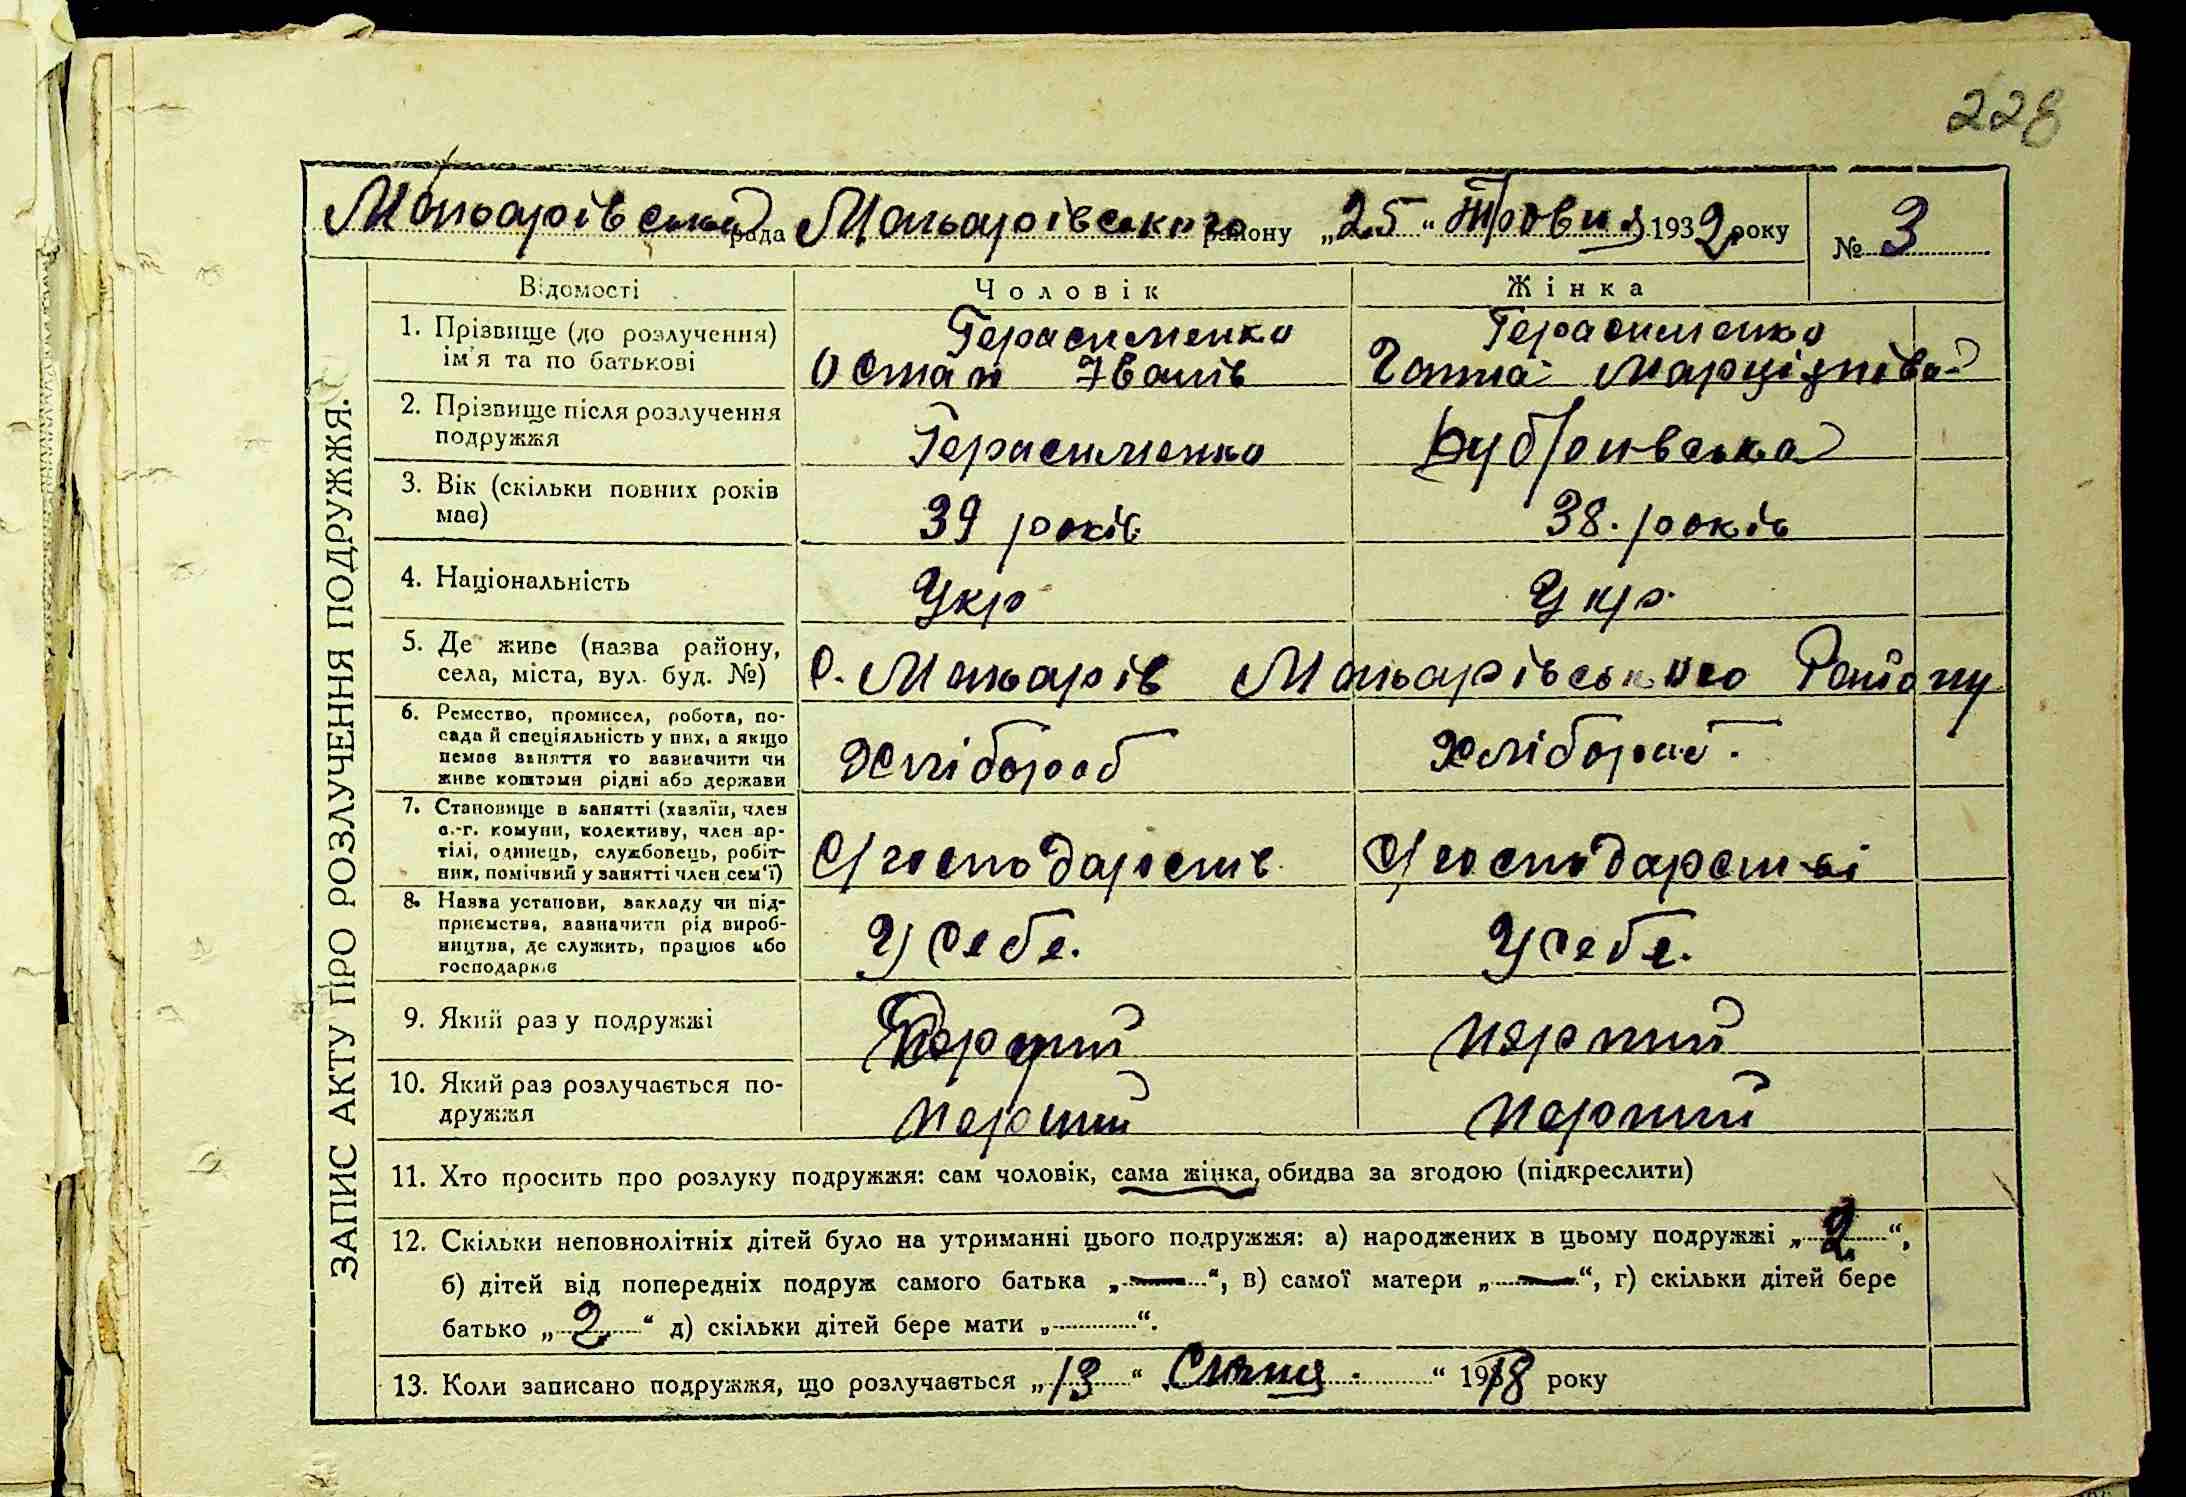 228
Макарівська рада Макарівського району „25“ Травня 1932 року № 3
ЗАПИС АКТУ ПРО РОЗЛУЧЕННЯ ПОДРУЖЖЯ.
Відомості Чоловік Жінка
1. Прізвище (до розлучення) Герасименко Герасименко
ім'я та по батькові Остап Іванів Ганна
2. Прізвище після розлучення
подружжя Герасименко
3. Вік (скільки повних років
має) 39 років 38. років
4. Національність Укр Укр.
5. Де живе (назва району,
села, міста, вул. буд. №) с. Макарів Макарівського Району
6. Ремество, промисел, робота, по-
сада й спеціяльність у них, а якщо
немає заняття то зазначити чи
живе коштами рідні або держави Хлібороб Хлібороб.
7. Становище в занятті (хазяїн, член
с.-г. комуни, колективу, член ар-
тілі, одинець, службовець, робіт-
ник, помічний у занятті член сем'ї) С/господарств С/господарстві
8. Назва установи, закладу чи під-
приємства, зазначити рід вироб-
ництва, де служить, працює або
господарює У себе. У себе.
9. Який раз у подружжі Перший Перший
10. Який раз розлучається по-
дружжя Перший Перший
11. Хто просить про розлуку подружжя: сам чоловік, сама жінка, обидва за згодою (підкреслити)
12. Скільки неповнолітніх дітей було на утриманні цього подружжя: а) народжених в цьому подружжі „2“,
б) дітей від попередніх подруж самого батька „—“, в) самої матери „—“, г) скільки дітей бере
батько „2“ д) скільки дітей бере мати „.............“.
13. Коли записано подружжя, що розлучається „13“ Січня 1918 року